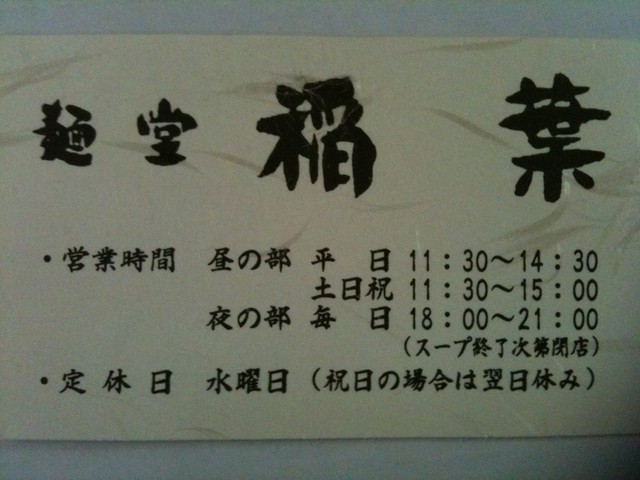 麺堂 稲葉
・営業時間 昼の部 平 日 11：30～14：30
土日祝 11：30～15：00
夜の部 毎 日 18：00～21：00
（スープ終了次第閉店）
・定休日 水曜日（祝日の場合は翌日休み）